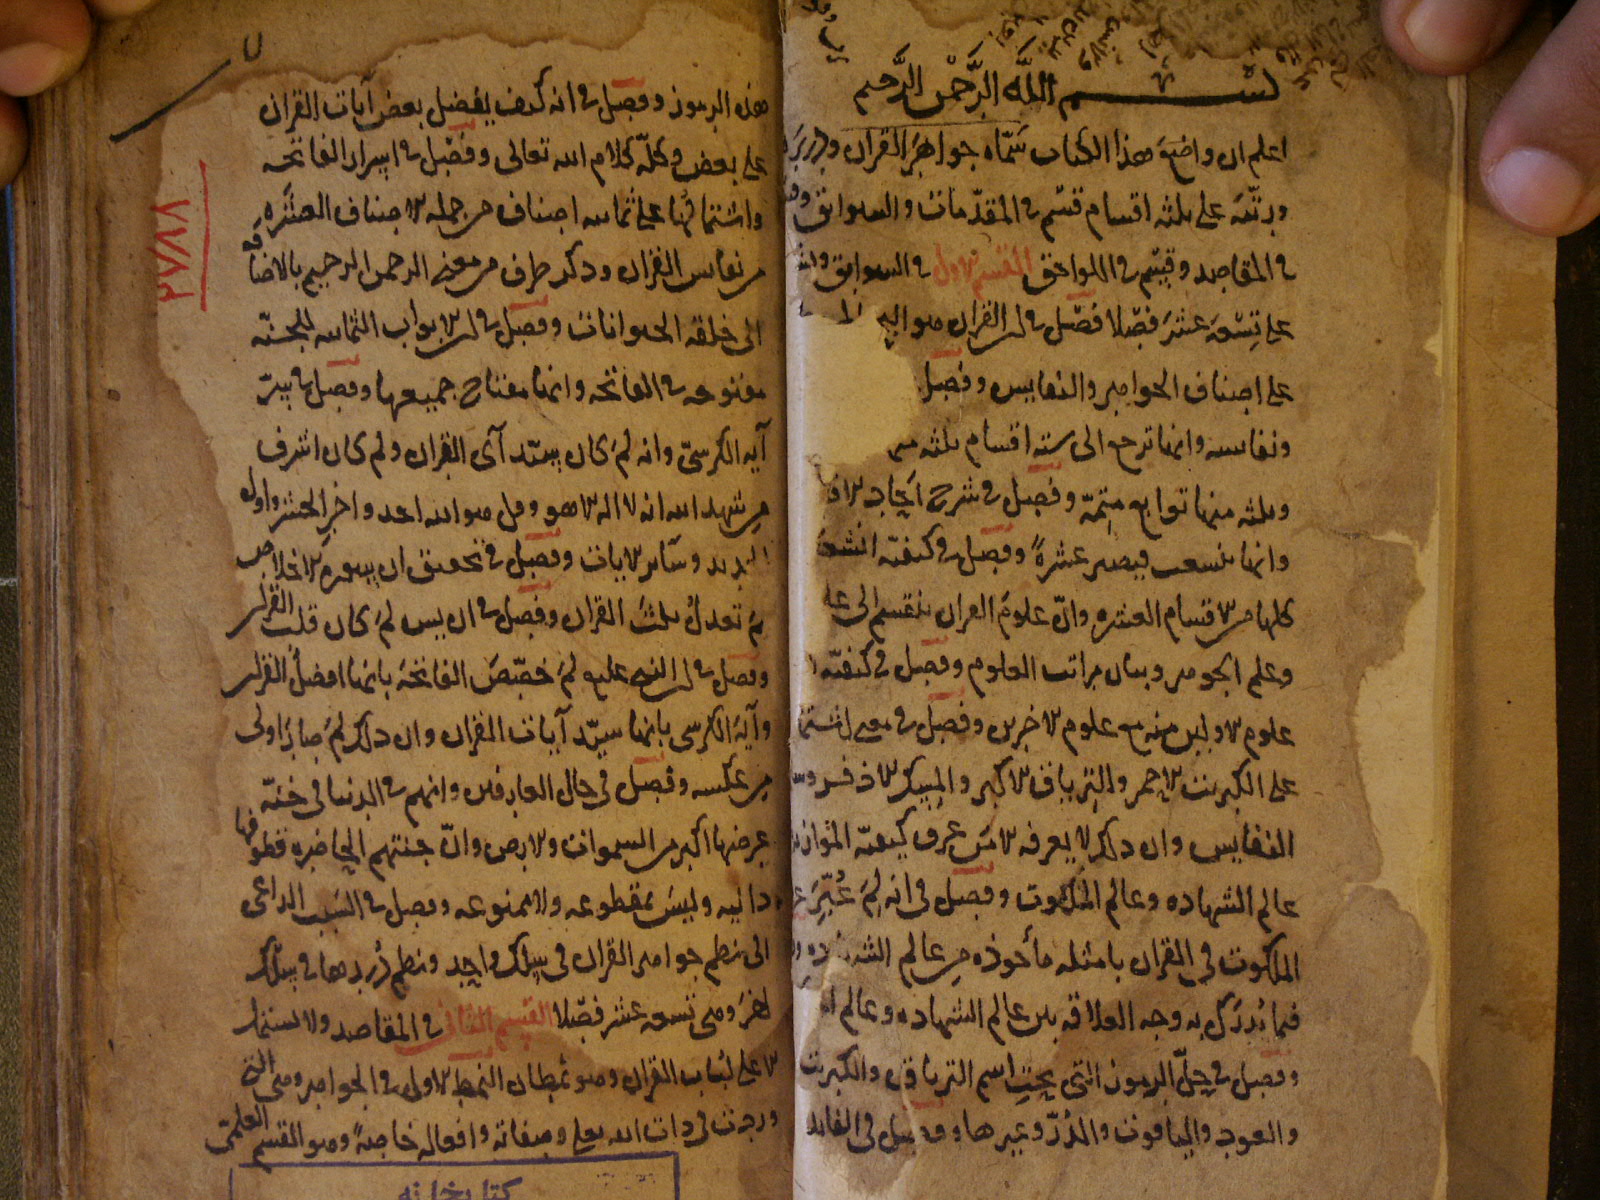 بسم الله الرَّحْمن الرَّحيم
اعلم ان واضع هذا الكتاب سَمّاه جواهرَ القران ودرره
ورتّبه على ثلثه اقسام قسْم في المقدّمات والسوابق
في المقاصد وقسْم في اللواحق القسم الاول في السوابق
على تِسْعَه عشَرَ فصْلا فصْل في ان القران هو البحر
على اصناف الجواهر والنفايس وفصل
ونفايسه وانها ترجع الى سته اقسام ثلثه
وثلثه منها توابع متِمّة وفصل في شرح آحاد
وانها تتشعب فيصير عشرةً وفصل في كيفيّه انشعاب
كلها من الاقسام العشره وانّ علومَ القران ينقسم الى علم
وعلم الجوهر وبيان مراتب العلوم وفصل في كيفيّه
علوم الاولين منه مع علوم الاخرين وفصل في معنى اشتمال
على الكبريت الاحمر والترياق الاكبر والمِسك الاذفر
النفايس وان ذلك لا يعرفه الا مَن عرف كيفيّه الموازنه
عالم الشهاده وعالم الملكوت وفصل في انه لِمَ عُبِّرَ
الملكوت في القران بامثله مأخوذه من عالم الشهاده
فيما يُدرَك به وجه العلاقه بين عالم الشهاده وعالم
وفصل في حلّ الرموز التي تحت اسم الترياق والكبريت
والعود والياقوت والدُرّ وغيرها وفصل في الفايده
هذه الرموز وفصل في انه كيف يفضل بعض آيات القران
على بعض وكلّه كلام الله تعالى وفصل في اسرار الفاتحه
واشتمالها على ثمانيه اصناف من جمله الاصناف العشَره
من نفايس القران وذكر طرف من معنى الرحمن الرحيم بالاضافه
الى خلقه الحيوانات وفصل في ان الابواب الثمانيه للجنّه
مفتوحه في الفاتحه وانها مفتاح جميعها وفصل في سِرّ
آيه الكرسيّ وانه لِمَ كان سيّد آى القران ولم كان اشرف
من شهد الله انه لا اله الا هو وقل هو الله احد واخر الحشر واول
الحديد وسائر الآيات وفصل في تحقيق ان سورة الاخلاص
لِمَ تعدلُ ثلثَ القران وفصل في ان يس لِمَ كان قلب القران
وفصل في ان النبي عليه لِمَ خصّصَ الفاتحَه بانها افضلُ القران
وآيَه الكرسى بانها سيّد آيات القران وان ذلك لِمَ صار اولى
من عكسه وفصل في حال العارفين وانهم في الدنيا في جنّه
عرضها اكبر من السموات والارض وانّ جنتهم الحاضره قطوفها
دانيه وليسَ بمقطوعه ولا ممنوعه وفصل في السَبب الداعى
الى نظم جواهر القران في سلك واحِد ونظم دُرَرها في سلك
اخرَ وهى تسعه عشر فصْلا القسم الثانى في المقاصد ولا يشتمل
الا على لُباب القران وهو نمطان النمط الاول في الجواهر وهى التى
وردت في ذات الله تعلى وصفاته وافعاله خاصةً وهو القسم العلمى
٢٧٨٨
كتابخانه